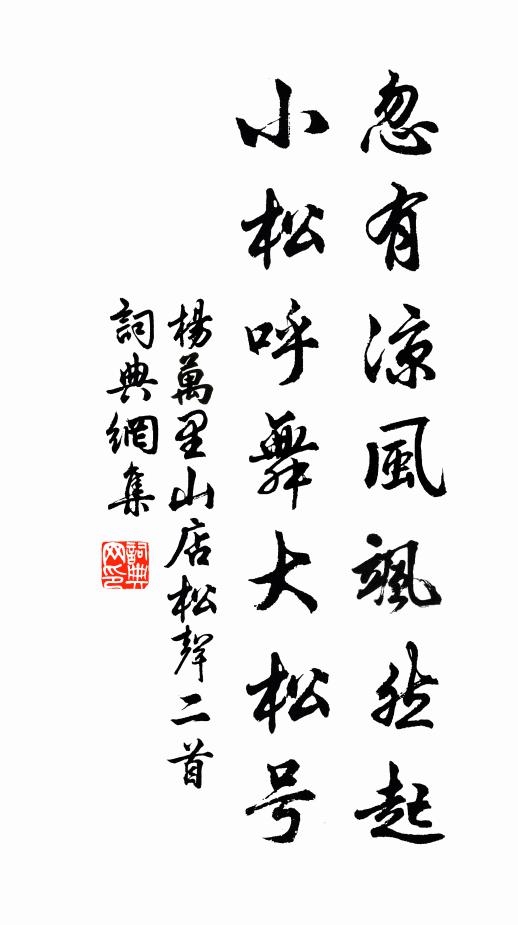 忽有涼風颯然起
小松呼舞大松号
楊萬里山店松聲二首
詞典網集
詞典網印